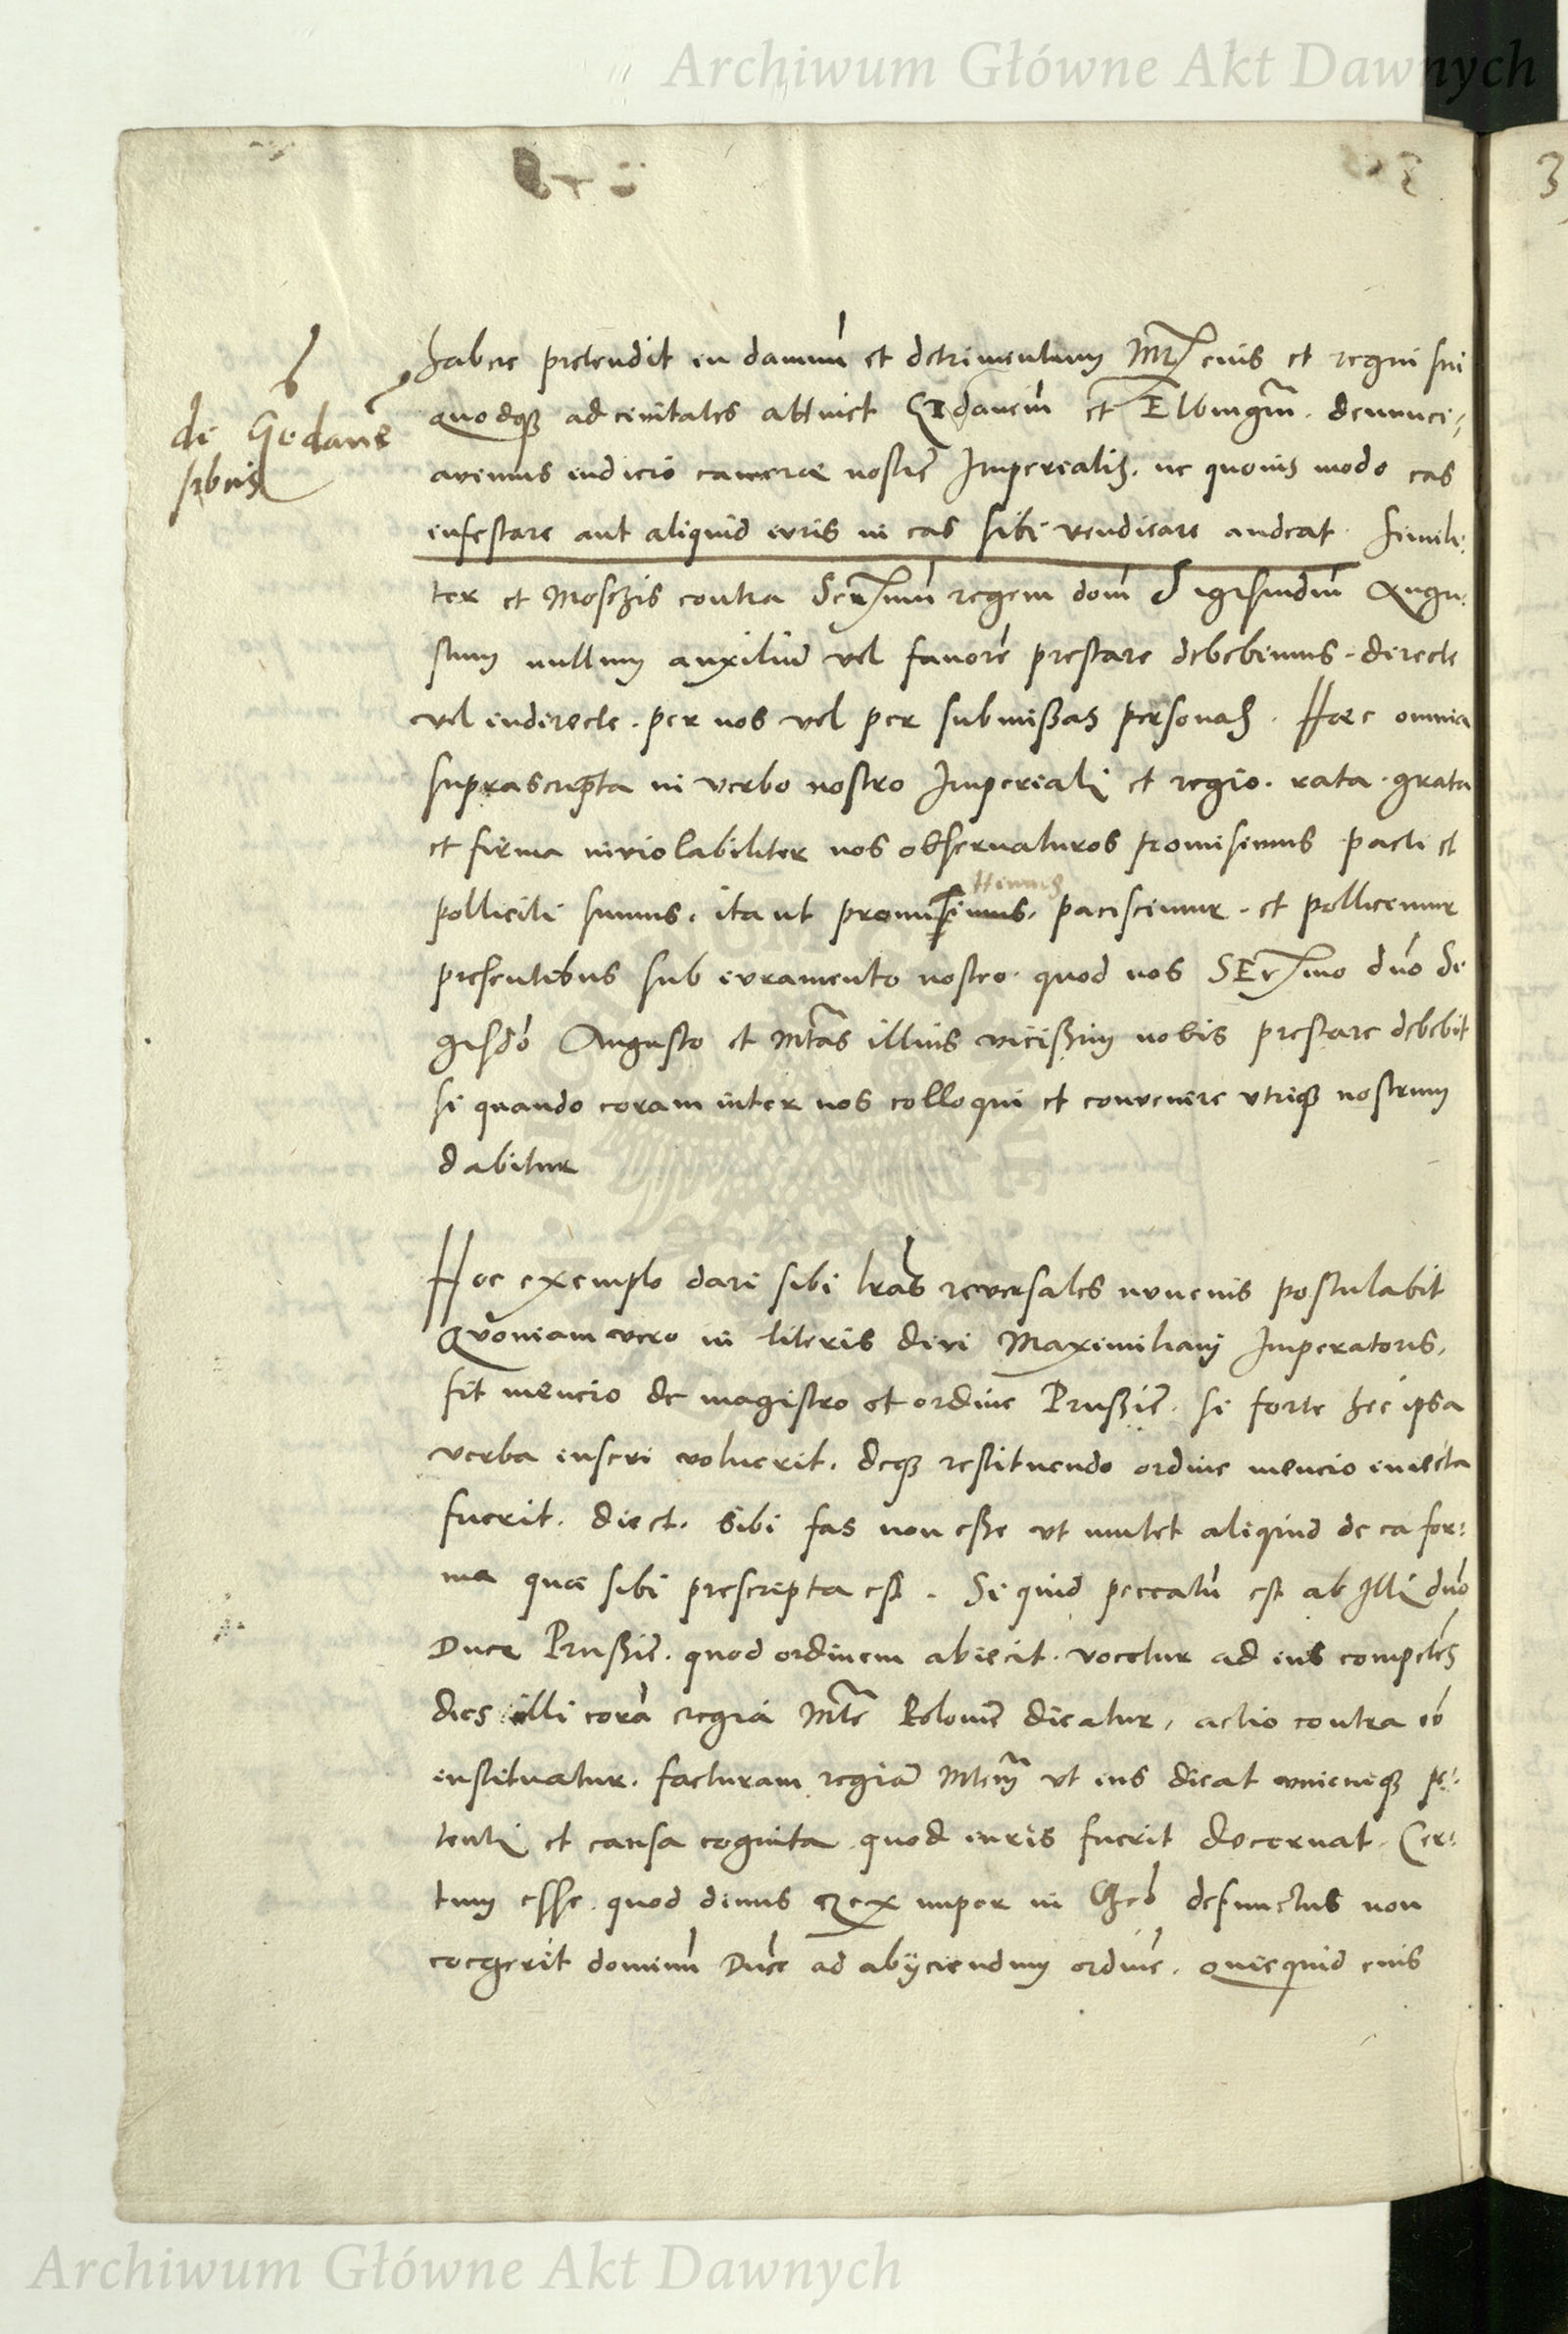 Archiwum Główne Akt Dawnych
3
habere pretendit in damnũ et detrimentum Mtis eius et regni sui
de Gedanẽ
quodque ad civitates attinet Gedanem̃ et Elbingem̃. denunci-
avimus iudicio camerae nostrẽ Imperialis. ne quovis modo eas
infestare aut aliquid iuris in eas sibi vendicare audeat. Simili-
ter et Moschis contra Sermũ regem dom̃ Sigismundũ Augu-
stum nullum auxiliũ vel favorẽ prestare debebimus. directe
vel indirecte. per nos vel per submissas personas. Haec omnia
suprascripta in verbo nostro Imperiali et regio. rata. grata
et firma inviolabiliter nos observaturos promisimus pacti et
polliciti sumus. ita ut promisimus. paciscimur. et pollicemur
presentibus sub iuramento nostro. quod nos SErmo dño Si
gisdo Augusto et Mtas illius vicissim nobis prestare debebit
si quando coram inter nos colloqui et convenire utrique nostrum
dabitur
Hoc exemplo dari sibi lras reversales nuncius postulabit
Quoniam vero in literis divi Maximiliani Imperatoris,
fit mencio de magistro et ordine Prussiẽ. si forte hec ipsa
verba inseri voluerit. deque restituendo ordine mencio iniecta
fuerit. dicet. sibi fas non esse ut mutet aliquid de ea for-
ma quae sibi prescripta est. Si quid peccatũ est ab Illi dño
Duce Prussiẽ. quod ordinem abiecit. vocetur ad ius competẽs
dies illi corã regia Mte Poloniẽ dicatur, actio contra eũ
instituatur. facturam regiã Mtem ut ius dicat unicuique pe-
tenti et causa cognita quod iuris fuerit decernat. Cer-
tum esse. quod divus rex nuper in Chrõ defunctus non
coegerit dominũ Ducẽ ad abijciendum ordinẽ. quicquid eius
Archiwum Główne Akt Dawnych